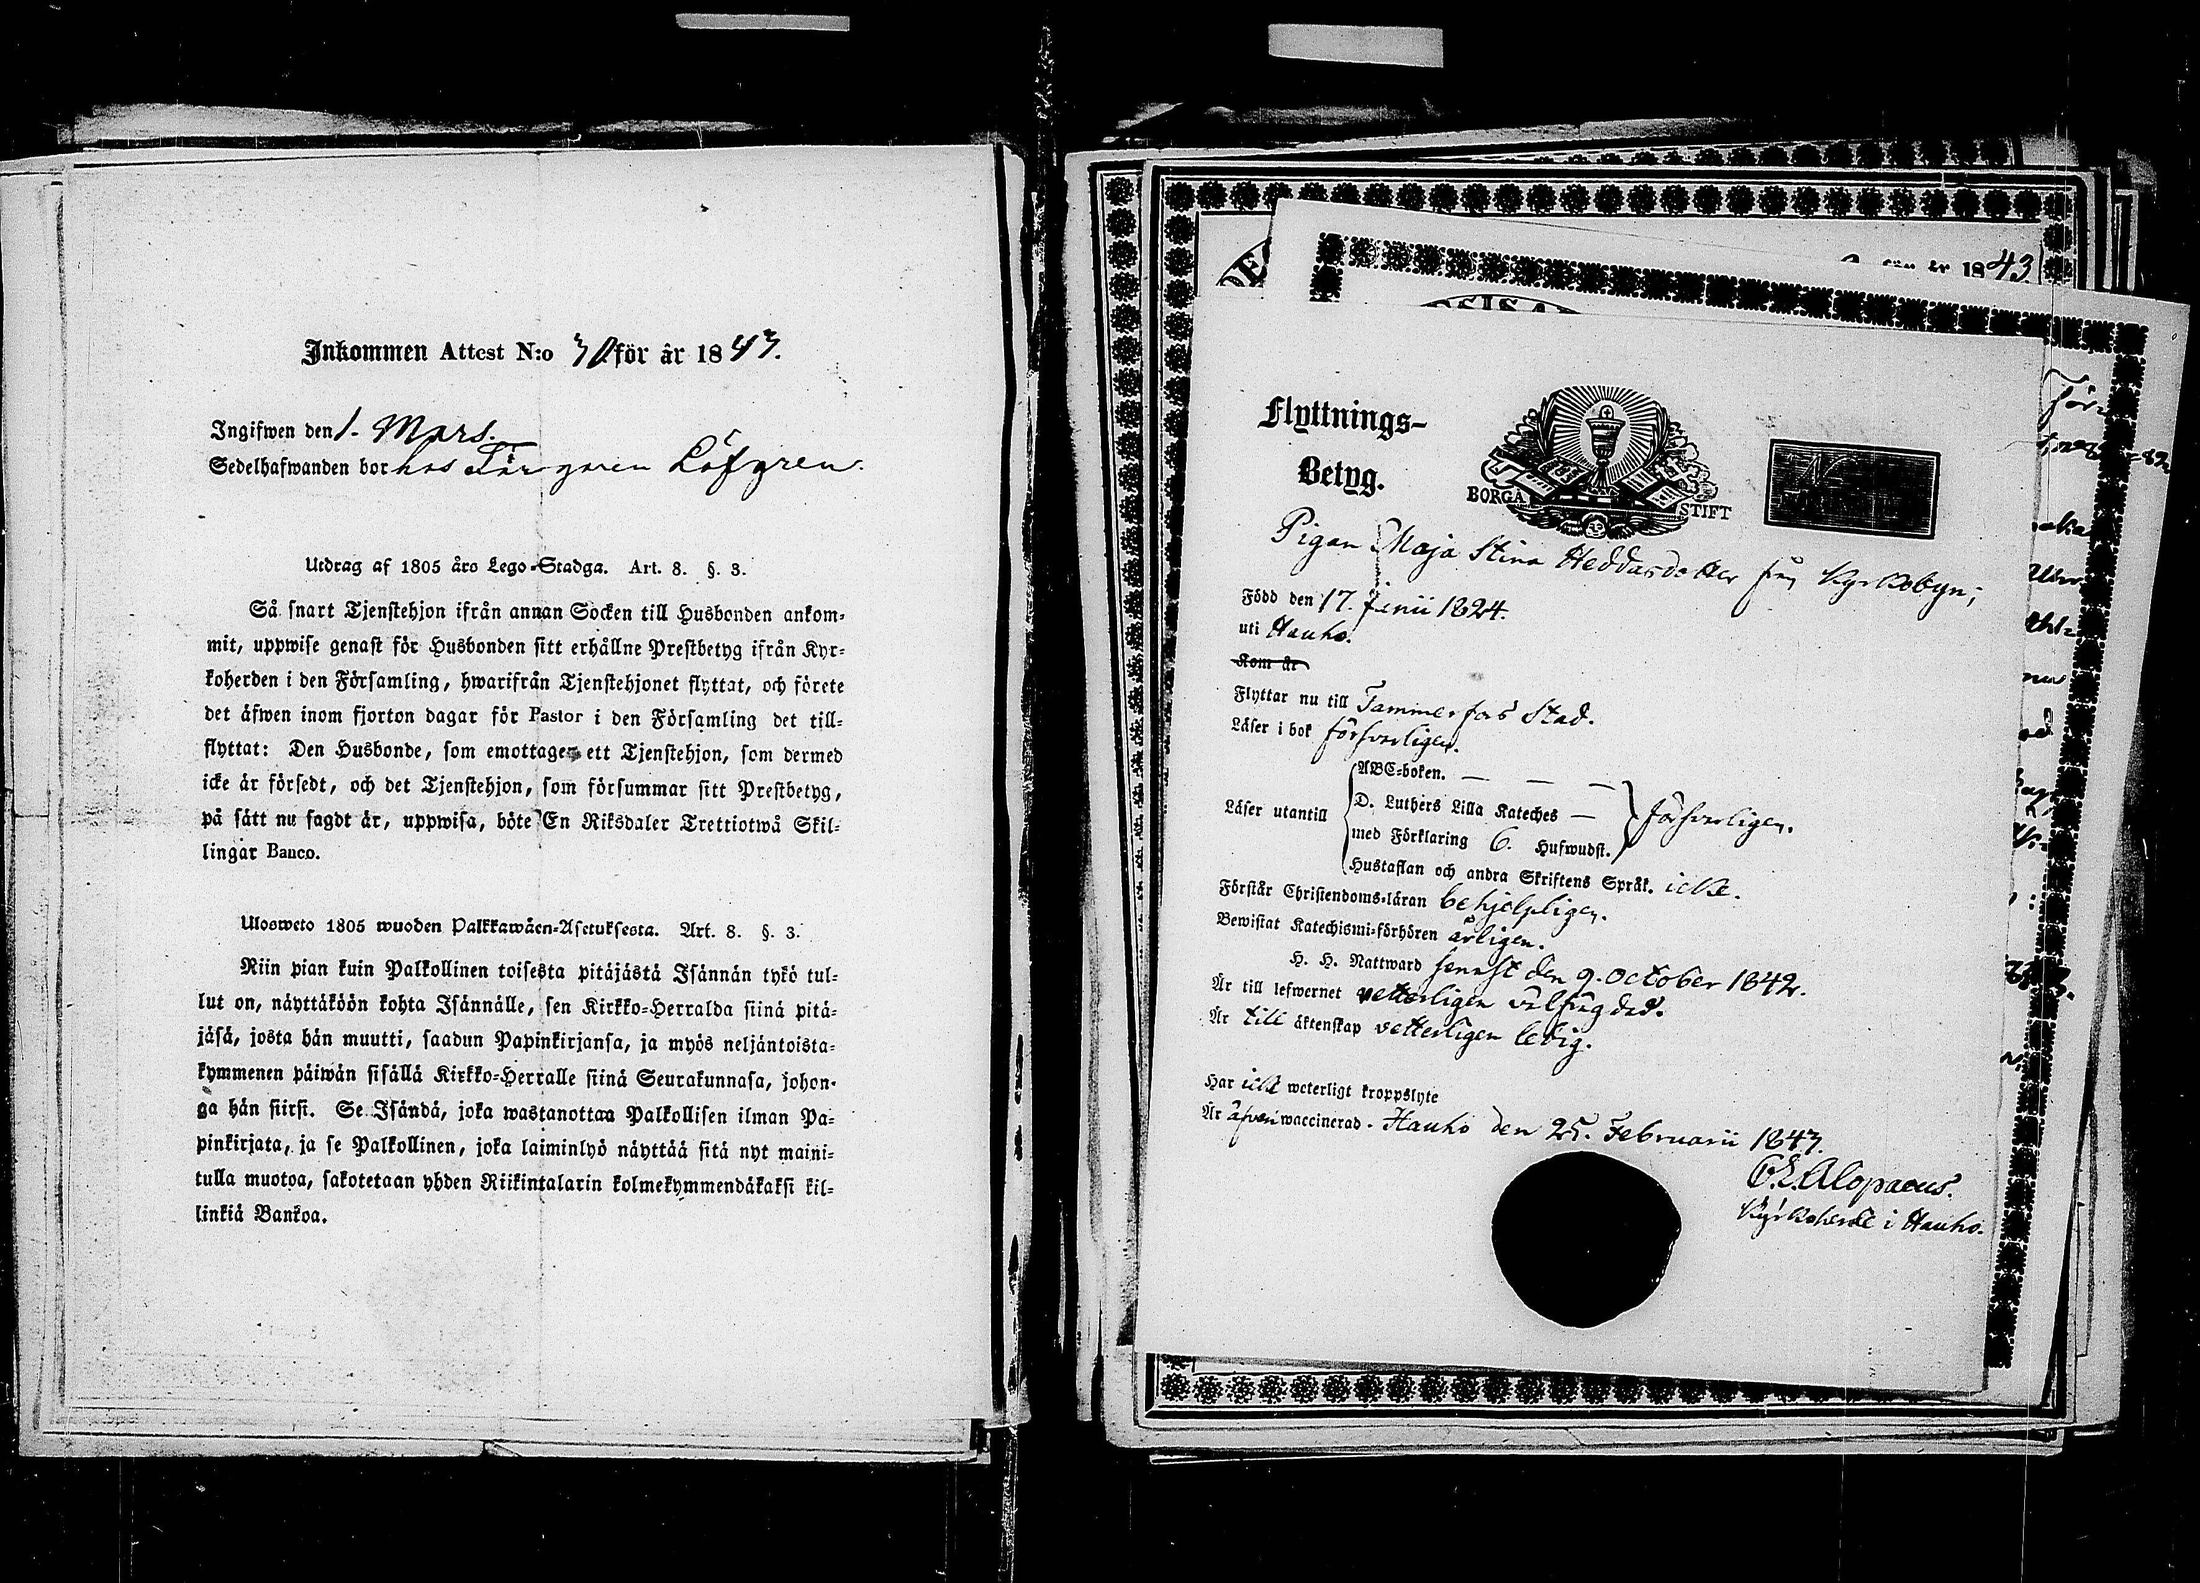 Inkommen Attest N:o 30 för år 1843.
Ingifwen den 1. Mars.
Sedelhafwanden bor hos Färgaren Löfgren.
Utdrag af 1805 års Lego-Stadga. Art. 8. §. 3.
Så snart Tjenstehjon ifrån annan Socken till Husbonden ankom-
mit, uppwise genast för Husbonden sitt erhållne Prestbetyg ifrån Kyr-
koherden i den Församling, hwarifrån Tjenstehjonet flyttat, och förete
det äfwen inom fjorton dagar för Pastor i den Församling det till-
flyttat: Den Husbonde, som emottager ett Tjenstehjon, som dermed
icke är försedt, och det Tjenstehjon, som försummar sitt Prestbetyg,
på sätt nu sagdt är, uppwisa, böte En Riksdaler Trettiotwå Skil-
lingar Banco.
Ulosweto 1805 wuoden Palkkawäen-Asetuksesta. Art. 8. §. 3.
Niin pian kuin Palkollinen toisesta pitäjästä Isännän tykö tul-
lut on, näyttäköön kohta Isännälle, sen Kirkko-Herralda siinä pitä-
jäsä, josta hän muutti, saadun Papinkirjansa, ja myös neljäntoista-
kymmenen päiwän sisällä Kirkko-Herralle siinä Seurakunnasa, johon-
ga hän siirsi. Se Isändä, joka wastanottaa Palkollisen ilman Pa-
pinkirjata, ja se Palkollinen, joka laiminlyö näyttää sitä nyt maini-
tulla muotoa, sakotetaan yhden Riikintalarin kolmekymmendäkaksi kil-
linkiä Bankoa.
för år 1843
Flyttnings-
Betyg.
BORGÅ STIFT
Pigan Maja Stina Heddasdotter från Kyrkobyn;
Född den 17. Junii 1824.
uti Hauho.
Kom år
Flyttar nu till Tammerfors Stad.
Läser i bok försvarligen.
ABC-boken. — — —
Läser utantill D. Luthers Lilla Kateches — försvarligen.
med Förklaring 6. Hufwudst.
Hustaflan och andra Skriftens Språk. icke.
Förstår Christendoms-läran behjelpligen.
Bewistat Katechismi-förhören årligen.
H. H. Nattward senast den 9. October 1842.
Är till lefwernet vetterligen välfrägdad.
Är till äktenskap vetterligen ledig.
Har icke weterligt kroppslyte
Är äfven waccinerad. Hauho den 25. Februarii 1843.
C. E. Alopaeus.
Kyrkoherde i Hauho.